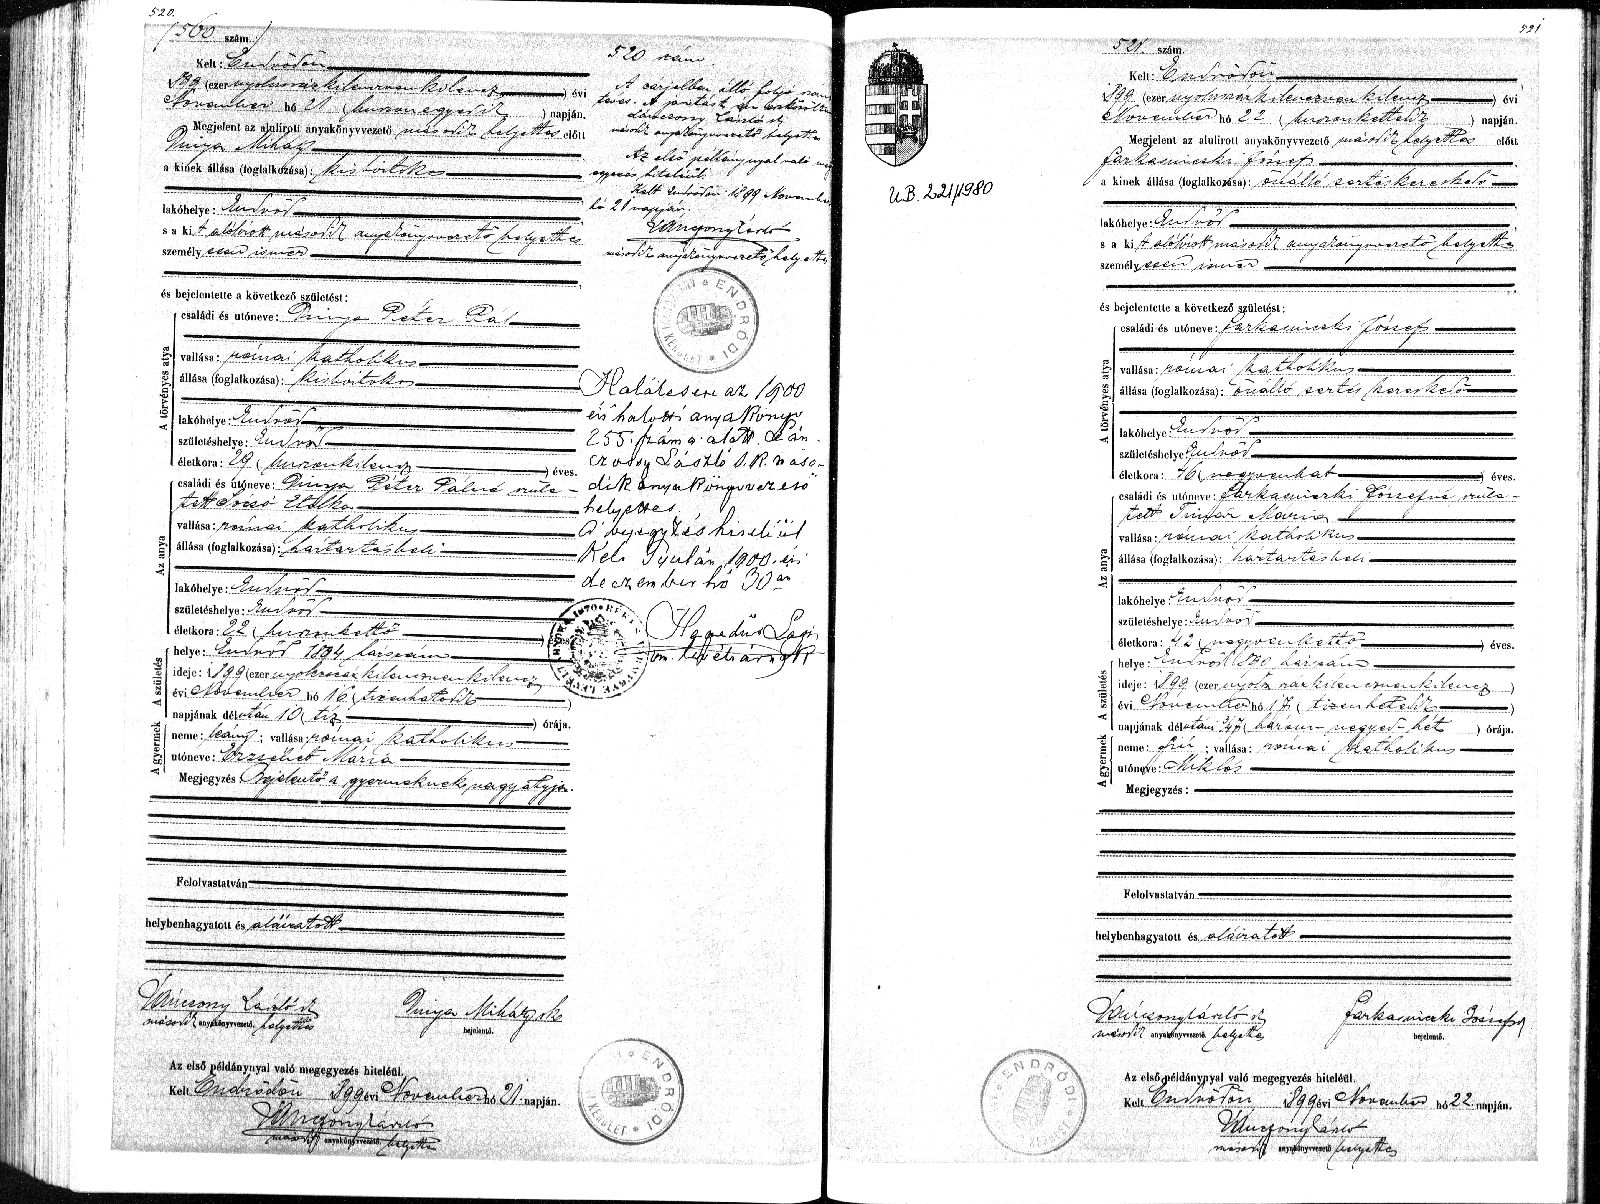 520.
(560 szám.)
Kelt: Endrődön
899 (ezernyolcszázkilenczvenkilencz) évi
November hó 21 (huszonegyedik) napján.
Megjelent az alulirott anyakönyvvezető második helyettes előtt
Dinya Mihály
a kinek állása (foglalkozása): kisbirtokos
lakóhelye: Endrőd
s a kit alólirott második anyakönyvvezető helyettes
személyesen ismer
és bejelentette a következő születést:
A törvényes atya
családi és utóneve: Dinya Péter Pál
vallása: római katholikus
állása (foglalkozása): kisbirtokos
lakóhelye: Endrőd
születéshelye: Endrőd
életkora: 29 (huszonkilencz) éves.
Az anya
családi és utóneve: Dinya Péter Pálné szüle-
tett Etelka
vallása: római katholikus
állása (foglalkozása): háztartásbeli
lakóhelye: Endrőd
születéshelye: Endrőd
életkora: 22 (huszonkettő) éves
A gyermek A születés
helye: Endrőd 1894 házszám
ideje: 1899 (ezernyolcszázkilenczvenkilencz)
évi November hó 16 (tizenhatodik)
napjának délután 10 (tíz) órája.
neme: leány; vallása: római katholikus
utóneve: Erzsébet Mária
Megjegyzés Bejelentő a gyermeknek nagyatyja.
Felolvastatván
helybenhagyatott és aláiratott
Vánczony László sk
második anyakönyvvezető helyettes
Dinya Mihály sk
bejelentő.
Az első példánynyal való megegyezés hiteléül.
Kelt Endrődön 899 évi November hó 21. napján.
Vánczony László
második anyakönyvvezető helyettes
520 szám
A zárjelben álló folyó szám
téves.
László sk
második anyakönyvvezető helyettes
Az első példánynyal való meg
egyezés hiteléül.
Kelt Endrődön 1899 November
hó 21 napján.
Vánczony László
második anyakönyvvezető helyettes
ENDRŐDI
Haláleset az 1900
évi halotti anyakönyv
255. száma alatt.
László s.k. máso-
dik anyakönyvvezető
helyettes.
A bejegyzés hiteléül
Kelt Gyulán, 1900. évi
deczember hó 30án
Hegedűs
vm. levéltárnok
521
U.B. 221/1980
521. szám.
Kelt: Endrődön
899 (ezernyolcszázkilenczvenkilencz) évi
November hó 22 (huszonkettedik) napján.
Megjelent az alulirott anyakönyvvezető második helyettes előtt
Farkasinczki József
a kinek állása (foglalkozása): önálló sertéskereskedő
lakóhelye: Endrőd
s a kit alólirott második anyakönyvvezető helyettes
személyesen ismer
és bejelentette a következő születést:
A törvényes atya
családi és utóneve: Farkasinczki József
vallása: római katholikus
állása (foglalkozása): önálló sertés kereskedő
lakóhelye: Endrőd
születéshelye: Endrőd
életkora: 46 (negyvenhat) éves.
Az anya
családi és utóneve: Farkasinczki Józsefné szüle-
tett Timár Mária
vallása: római katholikus
állása (foglalkozása): háztartásbeli
lakóhelye: Endrőd
születéshelye: Endrőd
életkora: 42 (negyvenkettő) éves.
A gyermek A születés
helye: Endrőd házszám
ideje: 1899 (ezernyolczszázkilenczvenkilencz)
évi November hó 17 (tizenhetedik)
napjának délutáni ¾7 (három negyed hét) órája.
neme: fiú; vallása: római katholikus
utóneve: Miklós
Megjegyzés:
Felolvastatván
helybenhagyatott és aláiratott
Vánczony László sk
második anyakönyvvezető helyettes
Farkasinczki József sk
bejelentő.
Az első példánynyal való megegyezés hiteléül.
Kelt Endrődön 1899 évi November hó 22. napján.
Vánczony László
második anyakönyvvezető helyettes
ENDRŐDI